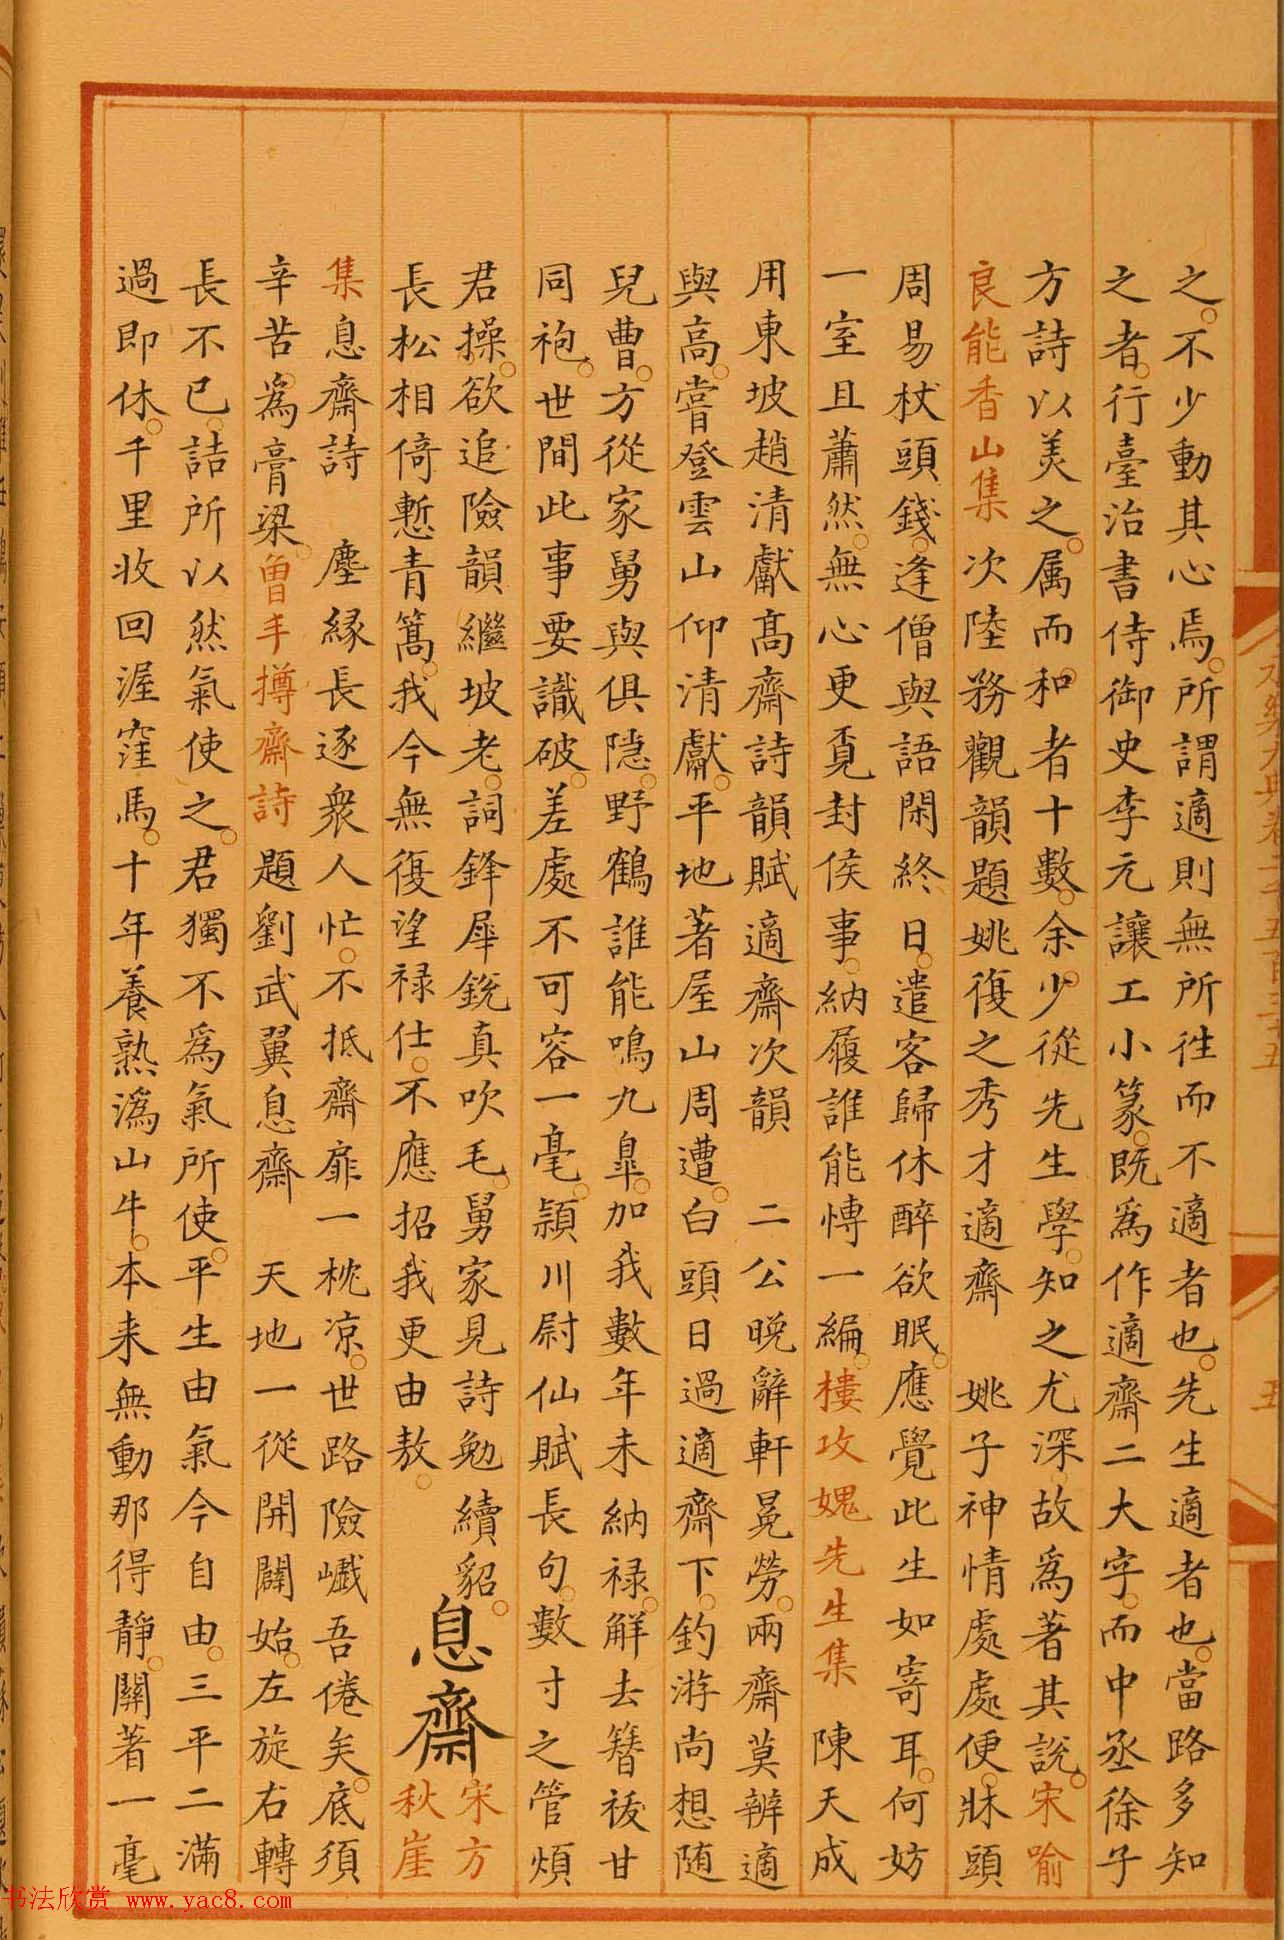 之不少動其心焉所謂適則無所往而不適者也先生適者也當路多知
之者行臺治書侍御史李元讓工小篆既爲作適齋二大字而中丞徐子
方詩以美之属而和者十數余少從先生學知之尤深故爲著其說宋喻
良能香山集次陸務觀韻題姚復之秀才適齋 姚子神情處處便牀頭
周易杖頭錢逢僧與語閑終日遣客歸休醉欲眠應覺此生如寄耳何妨
一室且蕭然無心更覓封侯事納履誰能慱一編樓攻媿先生集 陳天成
用東坡趙清獻髙齋詩韻賦適齋次韻 二公晚辭軒冕勞兩齋莫辨適
與高嘗登雲山仰清獻平地著屋山周遭白頭日過適齋下釣游尚想随
兒曹方從家舅與俱隠野鶴誰能鳴九臯加我數年未納禄解去簪祓甘
同袍世間此事要識破差處不可容一毫潁川尉仙賦長句數寸之管煩
君操欲追險韻繼坡老詞鋒犀銳真吹毛舅家見詩勉續貂
長松相倚慙青蒿我今無復望禄仕不應招我更由敖
息齋
宋方
秋崖
集息齋詩 塵緣長逐衆人忙不抵齋扉一枕凉世路險巇吾倦矣底須
辛苦爲膏梁曾丰撙齋詩題劉武翼息齋 天地一從開闢始左旋右轉
長不已詰所以然氣使之君獨不爲氣所使平生由氣今自由三平二滿
過即休千里收回渥窪馬十年養熟潙山牛本来無動那得靜關著一毫
永樂大典卷二千五百三十五
五
书法欣赏 www.yac8.com